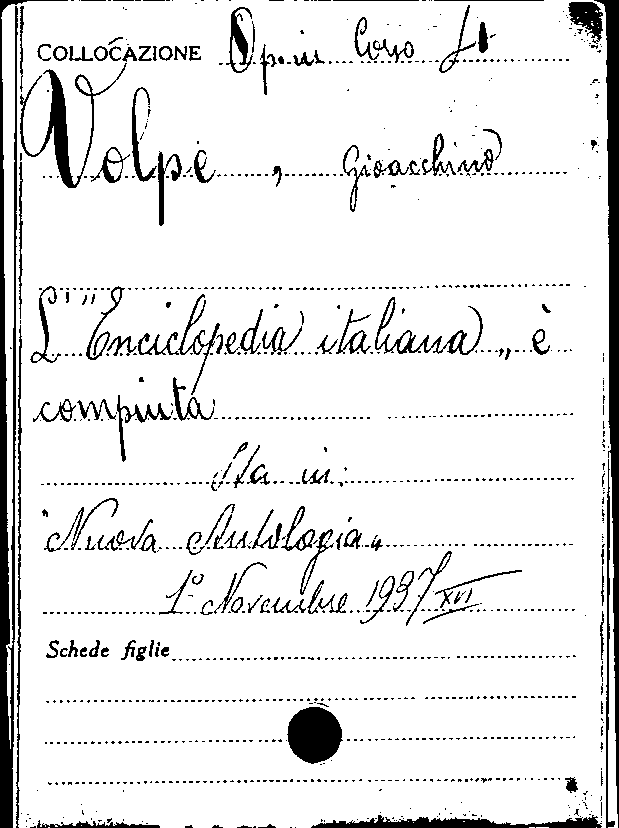 COLLOCAZIONE Op. in Corso
Volpe, Gioacchino
L'"Enciclopedia italiana„ è
compiuta
Sta in:
"Nuova Antologia„
1° Novembre 1937 XVI
Schede figlie